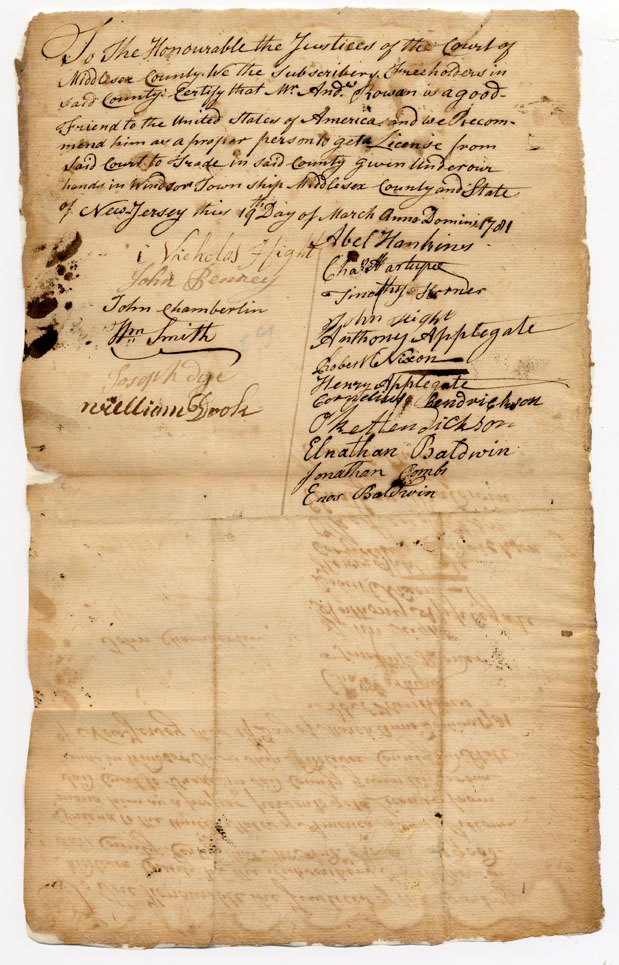 To The Honourable the Justices of the Court of
Middlesex County. We the Subscribers, Freeholders in
said County: Certify that Mr. Andw. Rowan is a good
Friend to the United States of America and we Recom-
mend him as a proper person to get a License from
Said Court to Trade in said County given Under our
hands in Windsor Town ship Middlesex County and State
of New-Jersey this 19th Day of March Anno Domini, 1781
Nicholas Hight
John
John Chamberlin
Wm Smith
Joseph Dye
William Cook
Abel Hankins
Chas.
Timothy Horner
John Hight
Anthony Applegate
Robert Nixon
Henry Applegate
Cornelius Hendrickson
Oke Hendickson
Elnathan Baldwin
Jonathan Combs
Enos Baldwin